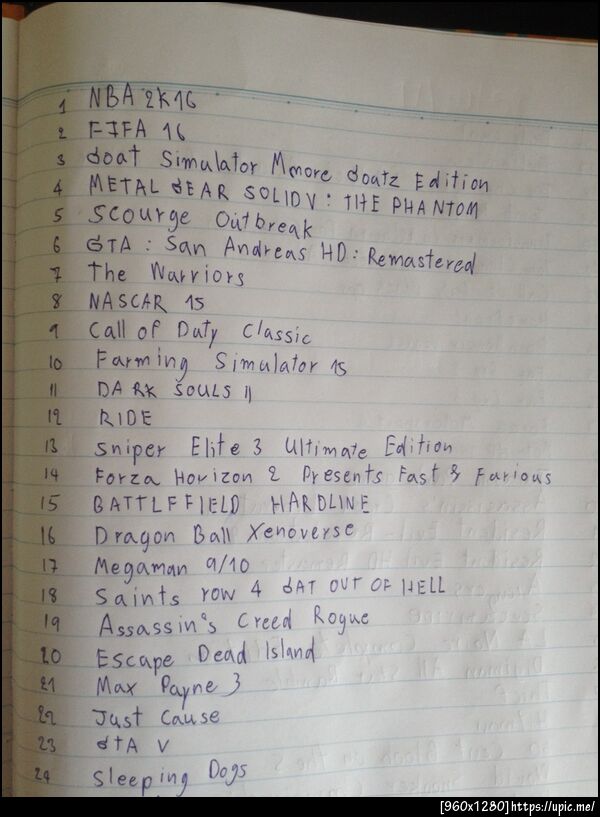 1 NBA 2K16
2 FIFA 16
3 Goat Simulator Mmore Goatz Edition
4 METAL GEAR SOLID V: THE PHANTOM
5 Scourge Outbreak
6 GTA : San Andreas HD: Remastered
7 The Warriors
8 NASCAR 15
9 Call of Duty Classic
10 Farming Simulator 15
11 DARK SOULS II
12 RIDE
13 Sniper Elite 3 Ultimate Edition
14 Forza Horizon 2 Presents Fast & Farious
15 BATTLFFIELD HARDLINE
16 Dragon Ball Xenoverse
17 Megaman 9/10
18 Saints row 4 GAT OUT OF HELL
19 Assassin's Creed Rogue
20 Escape Dead Island
21 Max Payne 3
22 Just Cause
23 GTA V
24 Sleeping Dogs
[960x1280]https://upic.me/